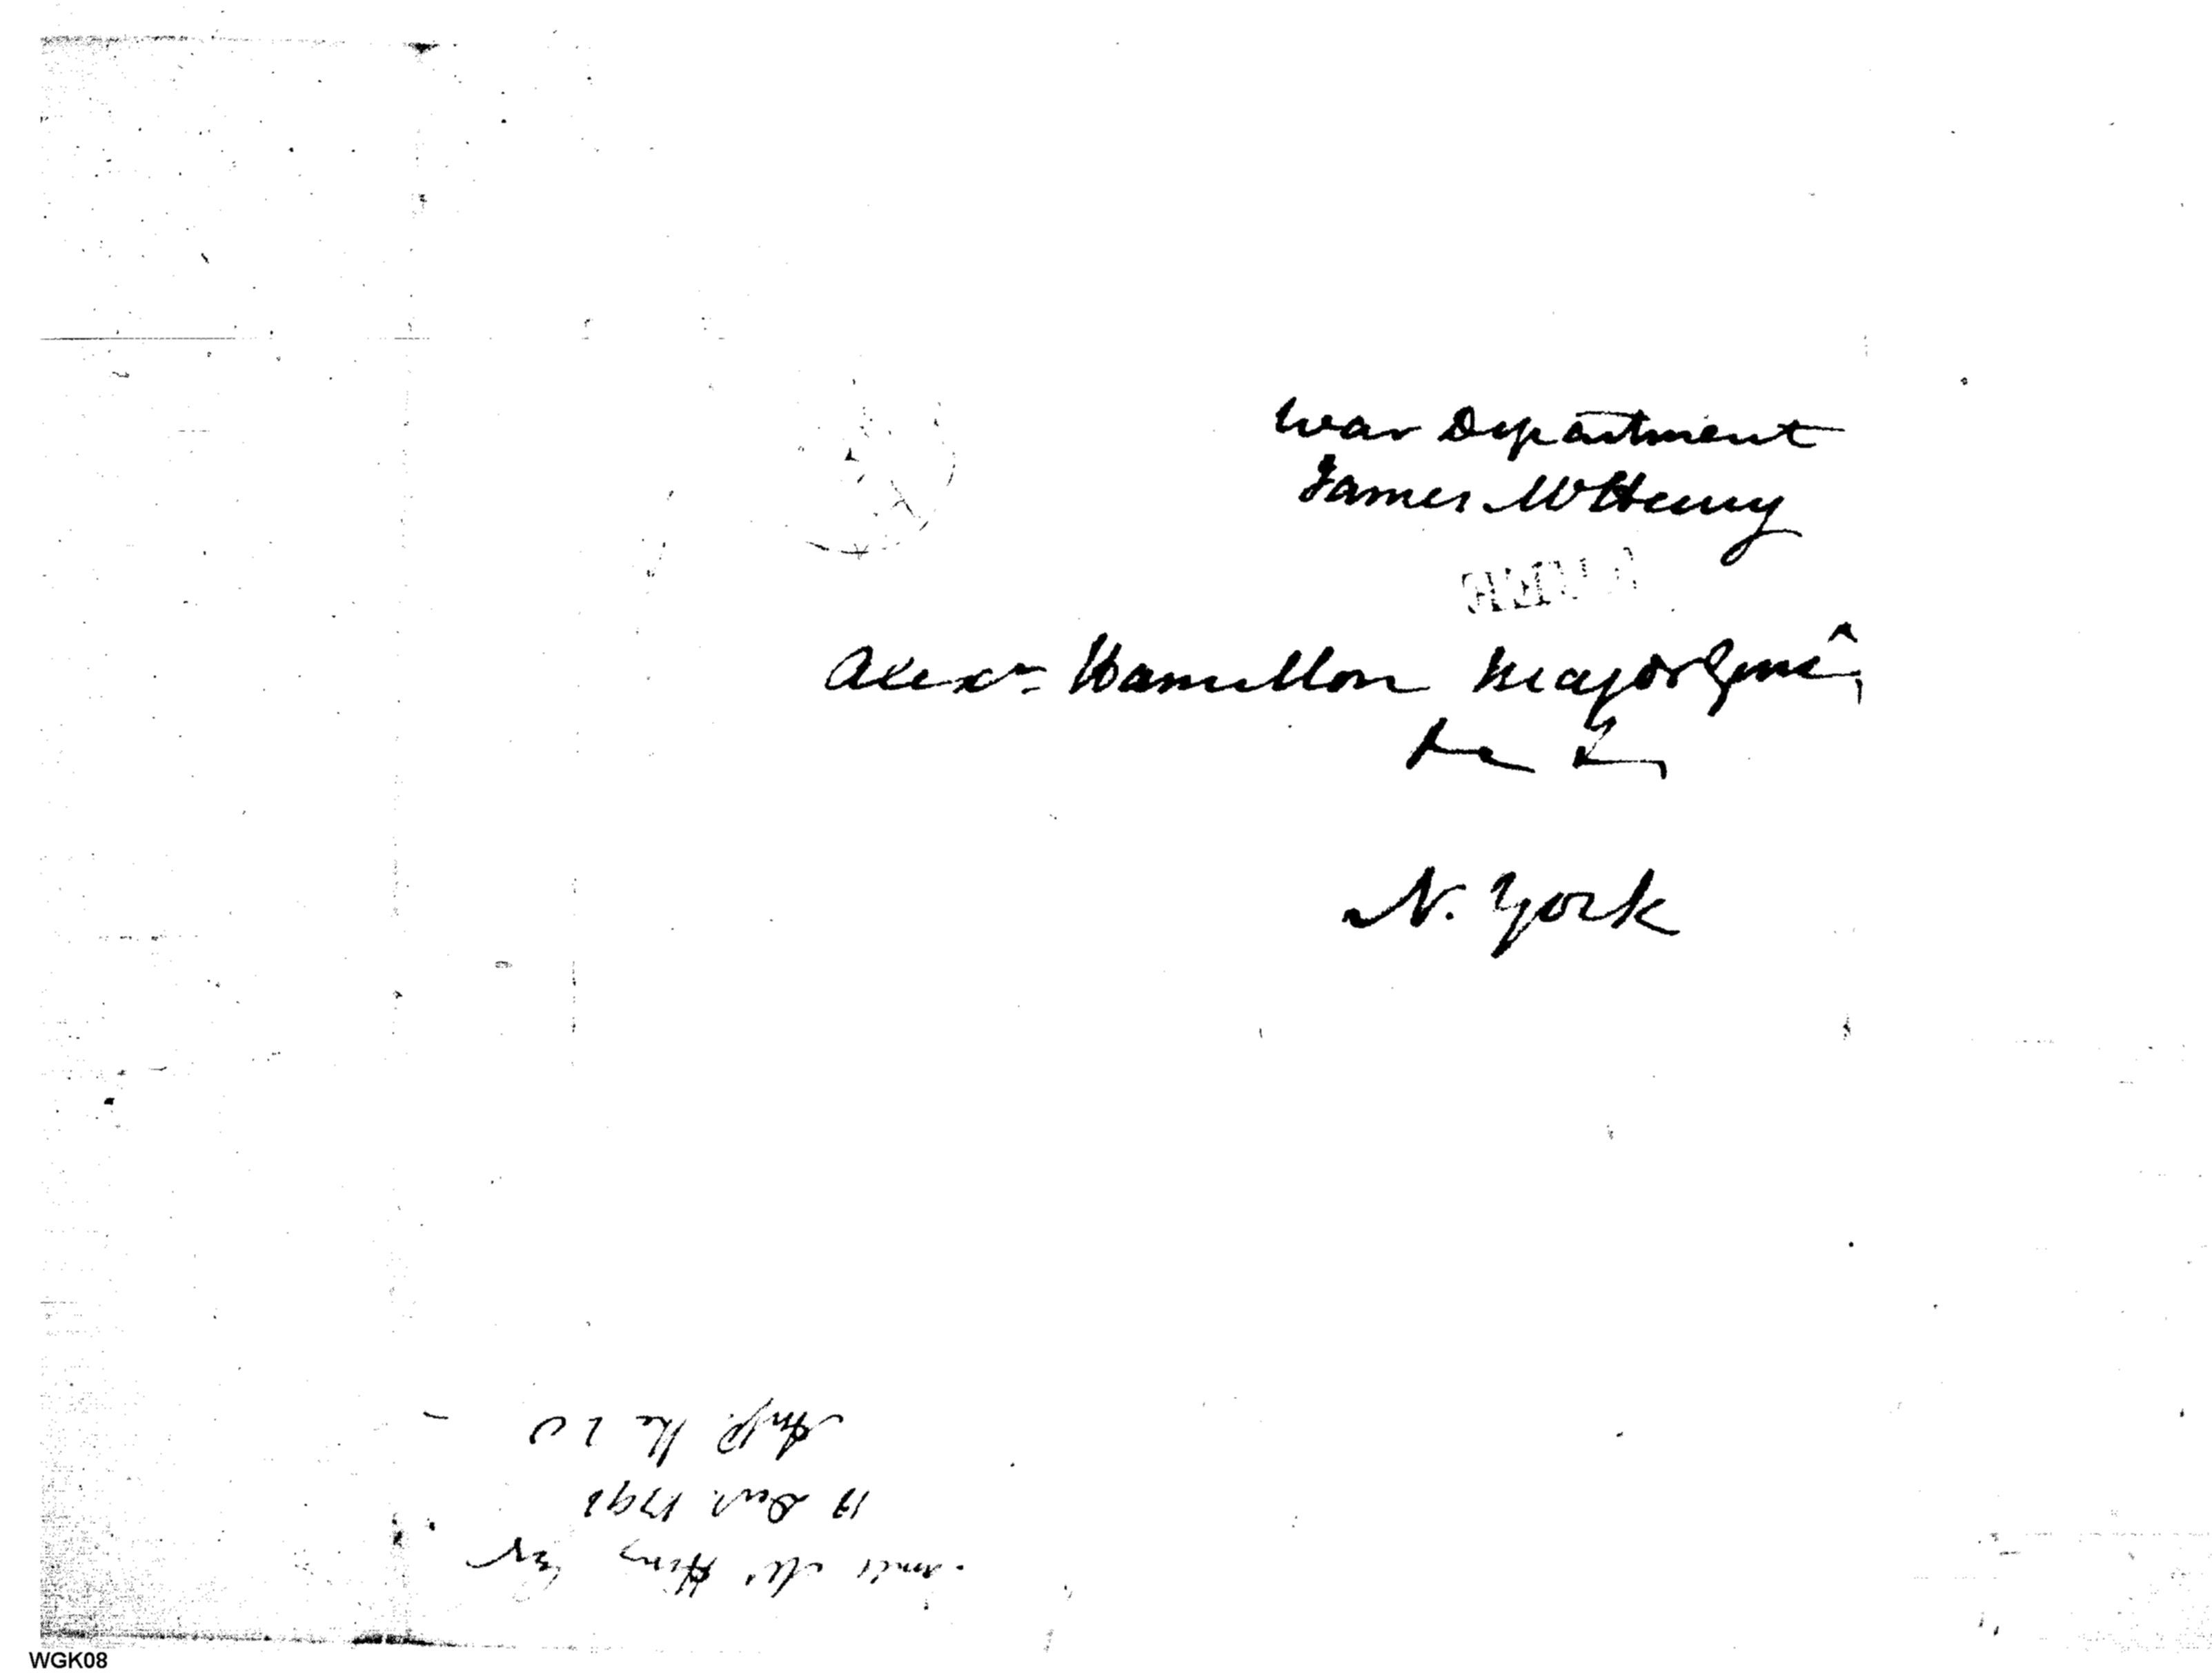 War Department
James McHenry
Alexr. Hamilton Major Genl,
&c &c,
N. York
James Mc Henry Esr
19 Decr. 1798
the 20
WGK08